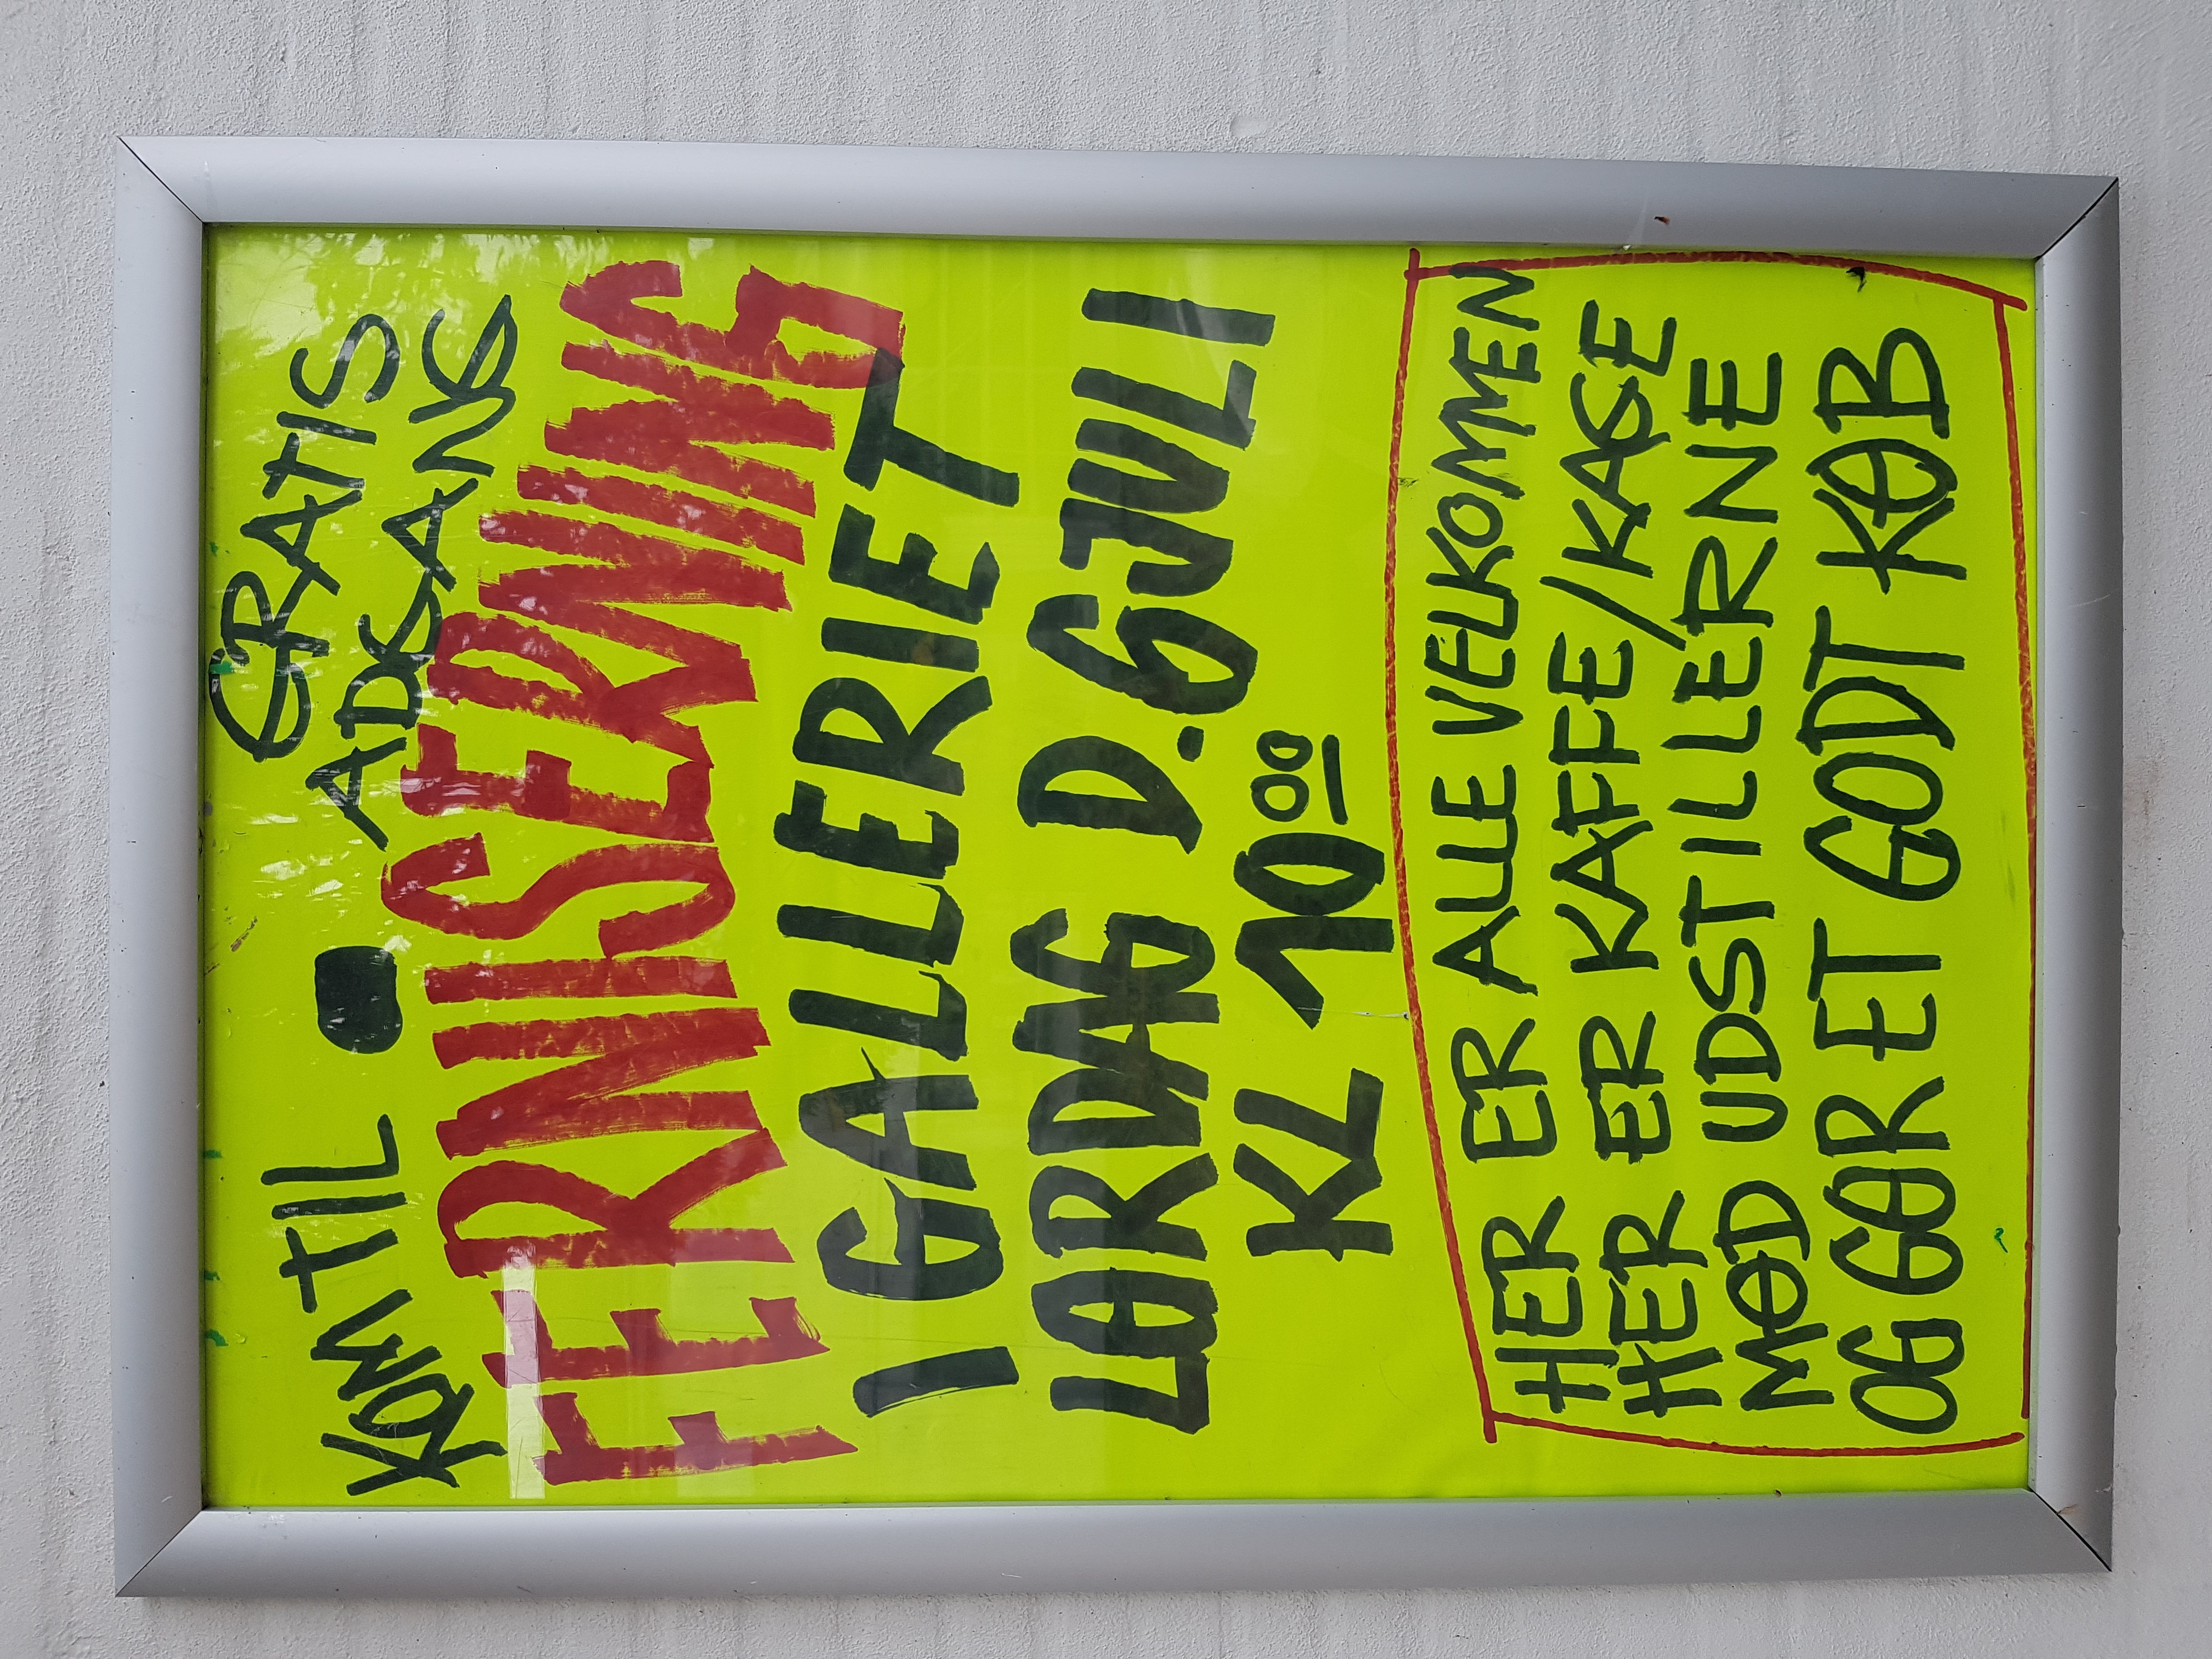 KOM TIL
GRATIS
ADGANG
FERNISERNING
I GALLERIET
LØRDAG D. 6 JULI
KL 10⁰⁰
HER ER ALLE VELKOMMEN
HER ER KAFFE/KAGE
MØD UDSTILLERNE
OG GØR ET GODT KØB